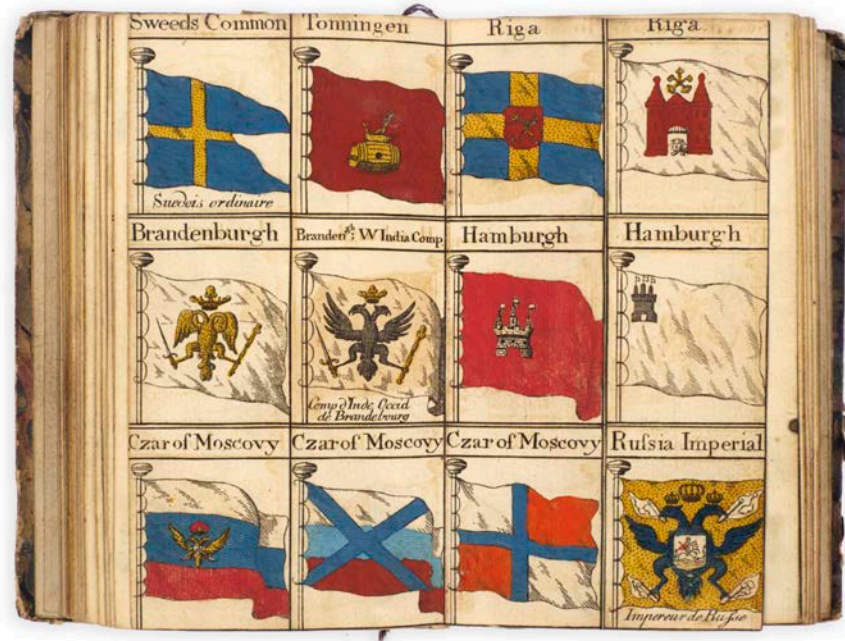 Sweeds Common
Tonningen
Riga
Riga
Suedois ordinaire
Brandenburgh
Branden.gh W India Comp
Hamburgh
Hamburgh
Comp d'Inde Occid
de Brandebourg
Czar of Moscovy
Czar of Moscovy
Czar of Moscovy
Ruſsia Imperial
Impereur de Ruſsie